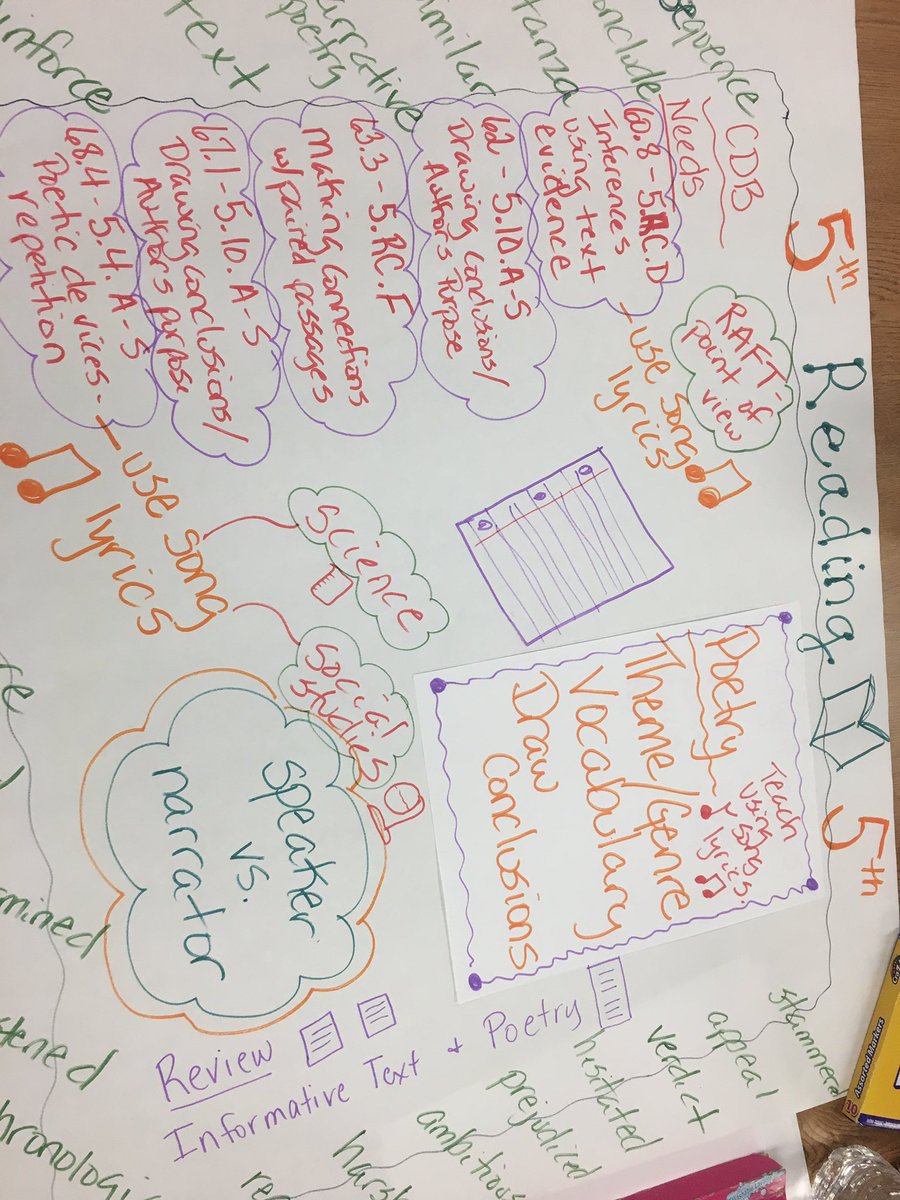 5th Reading 5th
sequence
conclude
stanza
similar
poetry
text
CDB
Needs
60.8 - 5.RC.D
Inferences
using text
evidence
62 - 5.10.A-S
Drawing Conclusions/
Authors Purpose
63.3 - 5.RC.F
Making Connections
w/paired passages
67.1 - 5.10.A-S
Drawing Conclusions/
Author's purpose
68.4 - 5.4.A-S
Poetic devices -
repetition
RAFT -
point of
view
- use song
lyrics
- use song
lyrics
Science
Social
studies
Poetry
Teach
using
song
lyrics.
Theme/Genre
Vocabulary
Draw
Conclusions
speaker
vs.
narrator
Review
Informative Text + Poetry
stammered
appeal
verdict
hesitated
prejudiced
ambitious
Assorted Markers
10